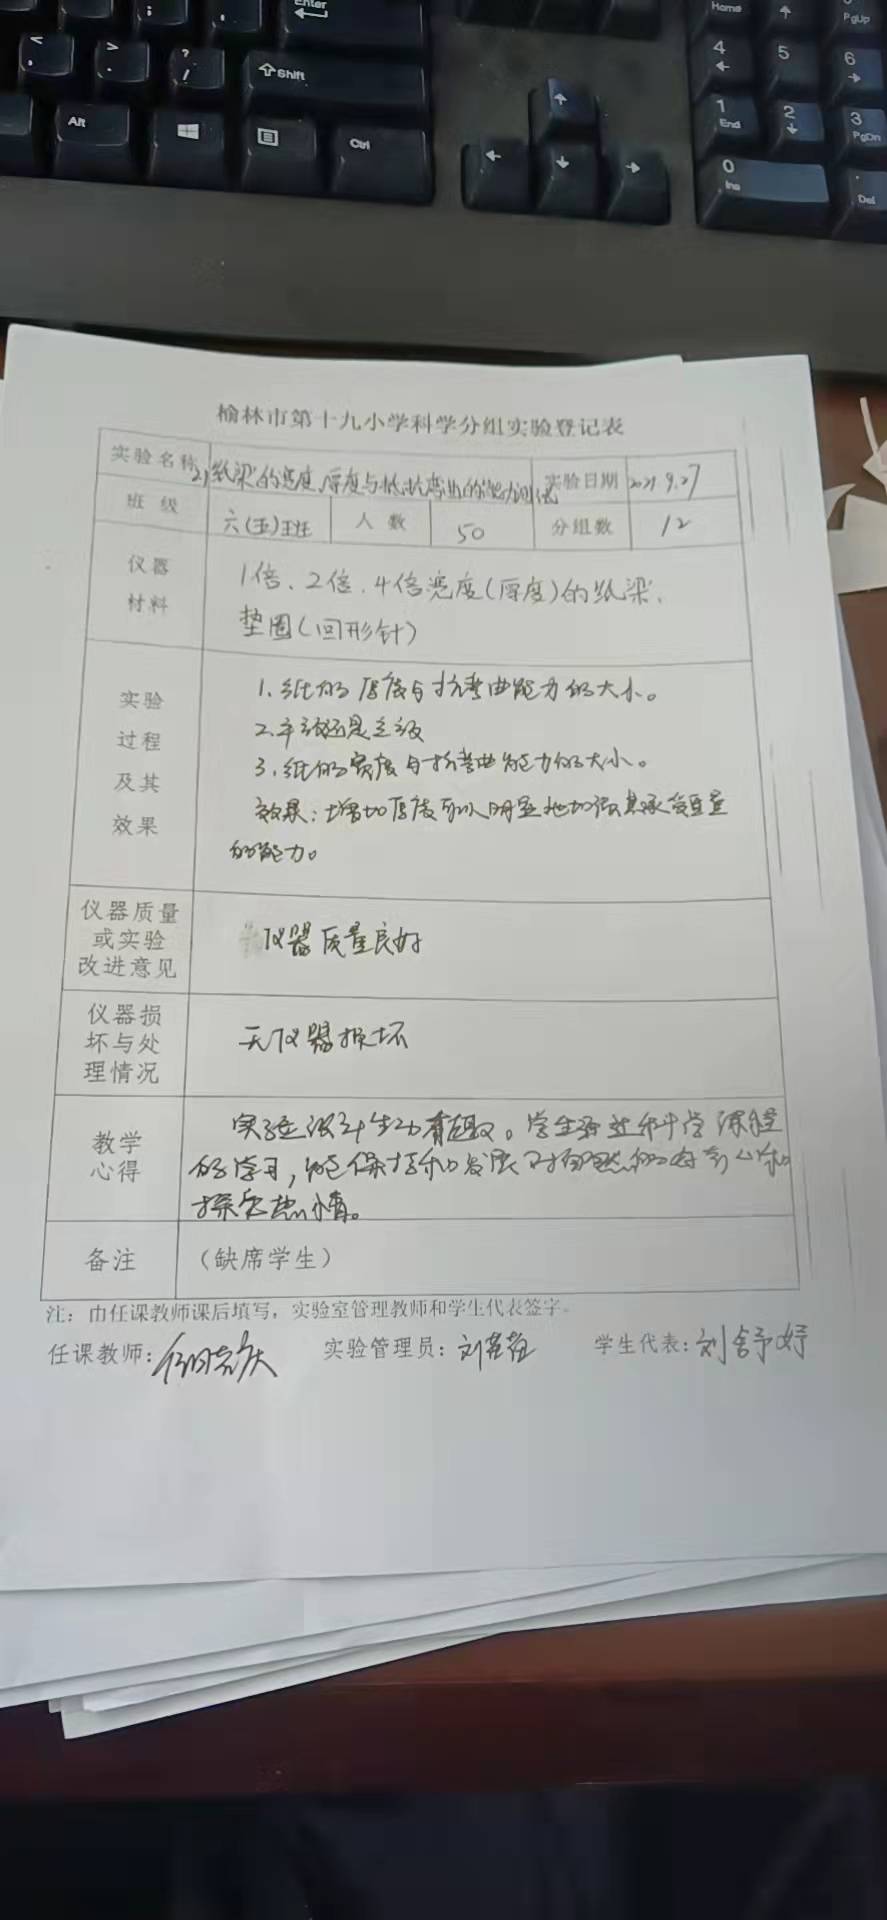 Enter
Home
PgUp
<
,
>
.
?
/
Shift
4
5
6
Alt
Ctrl
1
End
2
3
PgDn
0
Ins
.
Del
榆林市第十九小学科学分组实验登记表
实验名称 纸梁的宽度、厚度与抵抗弯曲的能力测试 实验日期 2021 9.27
班 级 六(五)班 人 数 50 分组数 12
仪器 材料 1倍、2倍、4倍宽度(厚度)的纸梁、
垫圈(回形针)
实验 过程 及其 效果 1.纸的厚度与抗弯曲能力的大小。
2.
3.纸的宽度与抗弯曲能力的大小。
效果:增加厚度可以明显地加强其承受重量
的能力。
仪器质量 或实验 改进意见 仪器质量良好
仪器损 坏与处 理情况 无仪器损坏
教学 心得 实验设计生动有趣。学生通过科学课程
的学习,能保持和发展对自然的好奇心和
探究热情。
备注 (缺席学生)
注: 由任课教师课后填写,实验室管理教师和学生代表签字。
任课教师: 实验管理员: 学生代表:刘舒妤